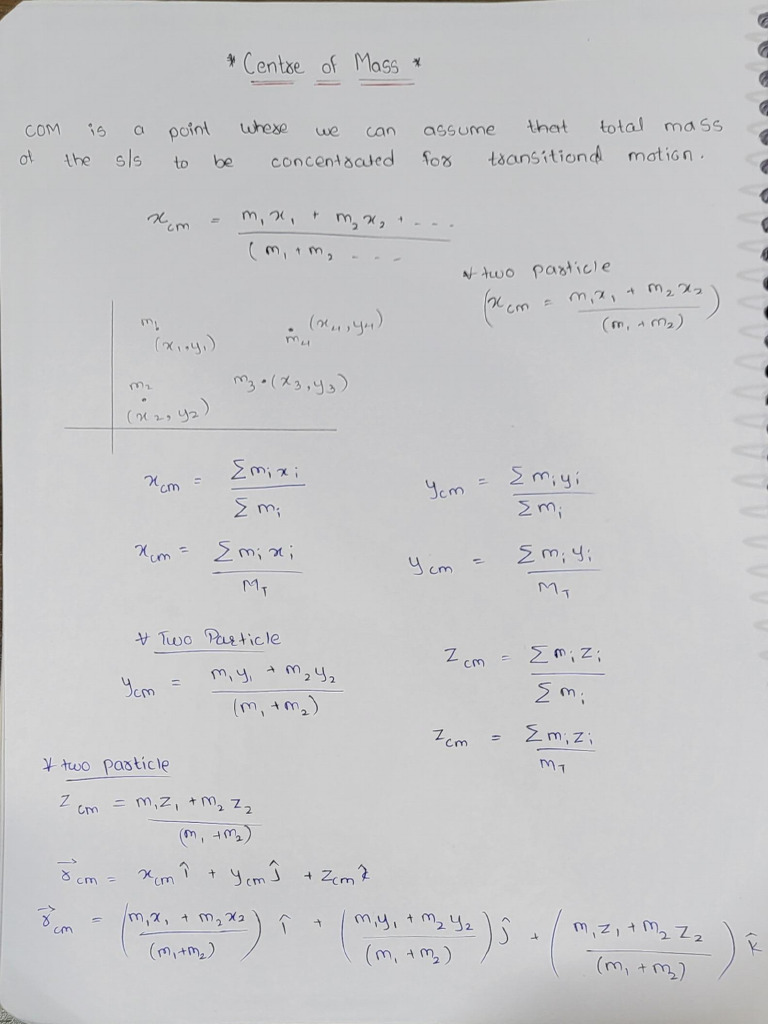 * Centre of Mass *
COM is a point where we can assume that total mass
of the s/s to be concentrated for transitional motion.
x_cm = (m₁x₁ + m₂x₂ + ---) / (m₁ + m₂ ---
* two particle
(x_cm = (m₁x₁ + m₂x₂) / (m₁ + m₂))
m₁ (x₁, y₁)
m₄ (x₄, y₄)
m₂ (x₂, y₂)
m₃ • (x₃, y₃)
x_cm = Σmᵢxᵢ / Σmᵢ
y_cm = Σmᵢyᵢ / Σmᵢ
x_cm = Σmᵢxᵢ / M_T
y_cm = Σmᵢyᵢ / M_T
* Two Particle
y_cm = (m₁y₁ + m₂y₂) / (m₁ + m₂)
z_cm = Σmᵢzᵢ / Σmᵢ
z_cm = Σmᵢzᵢ / M_T
* two particle
z_cm = (m₁z₁ + m₂z₂) / (m₁ + m₂)
r⃗_cm = x_cm î + y_cm ĵ + z_cm k̂
r⃗_cm = ((m₁x₁ + m₂x₂) / (m₁+m₂)) î + ((m₁y₁ + m₂y₂) / (m₁ + m₂)) ĵ + ((m₁z₁ + m₂z₂) / (m₁ + m₂)) k̂